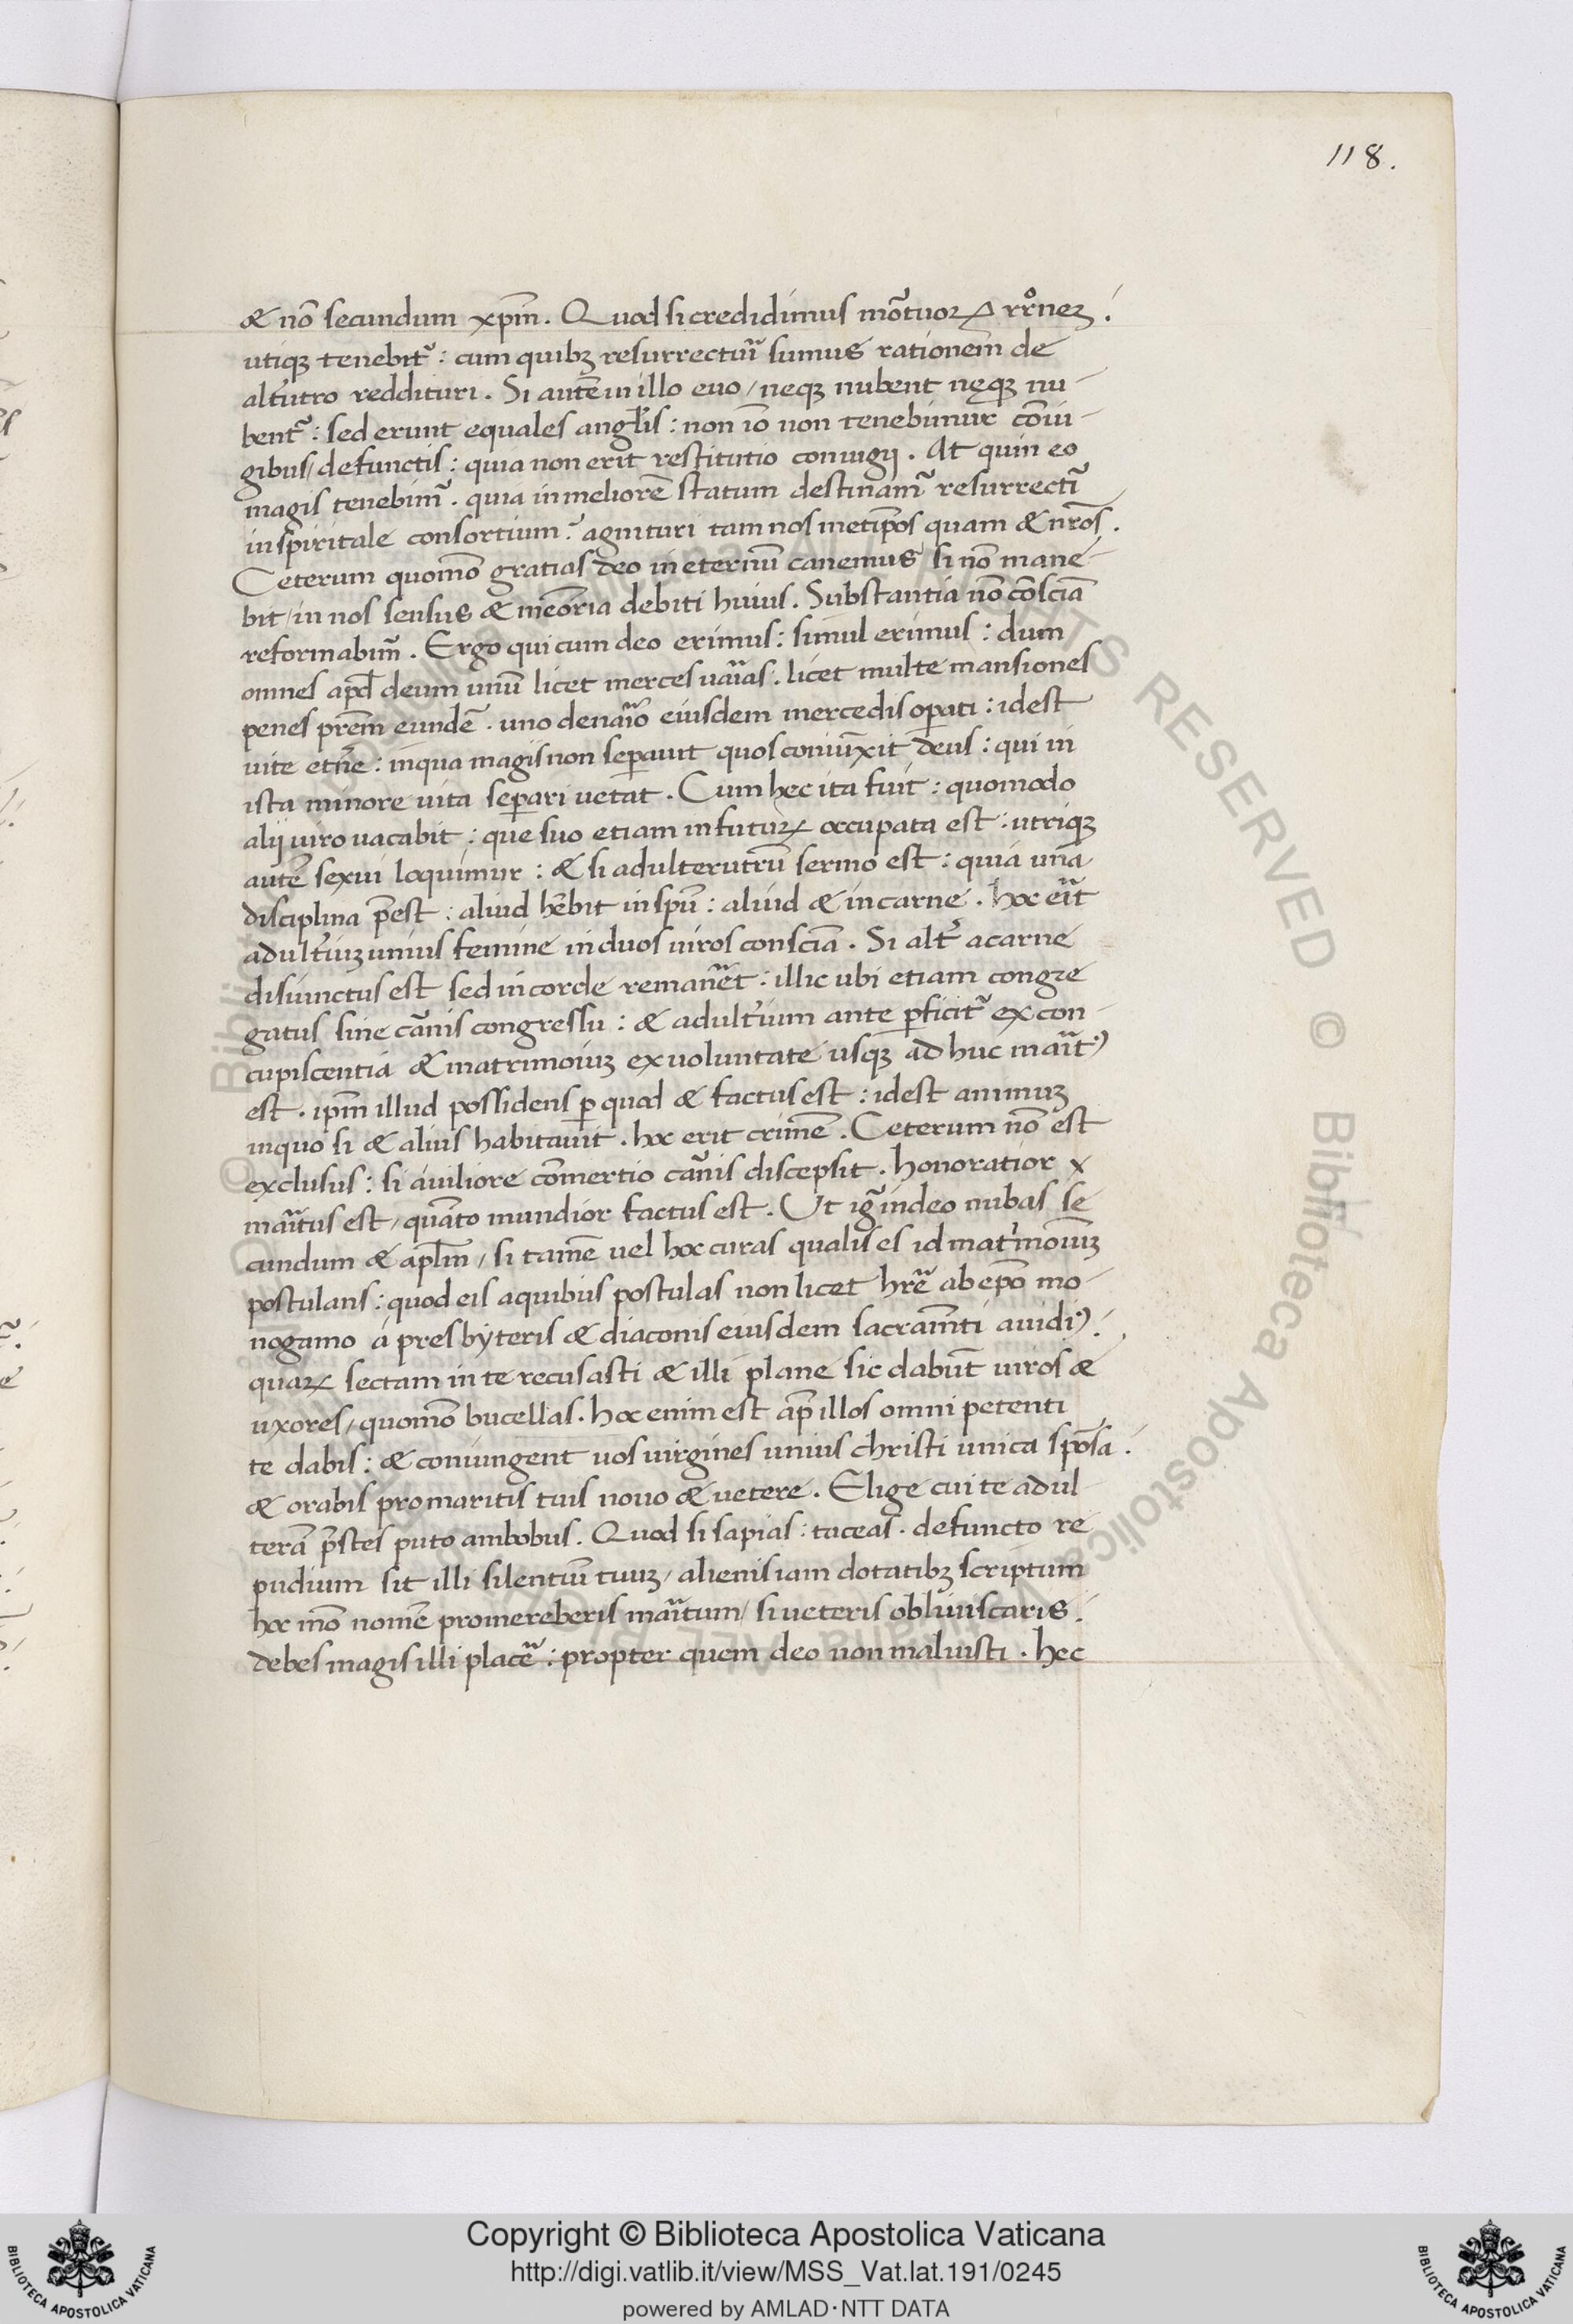 118.
& nō secundum xp̄m. Quod si credidimus mōtuoꝝ rr̊neꝫ:
utiqꝫ tenebit᷑: cum quibꝫ resurrectuȓi sumus rationem de
alt̓utro reddituri. Si autē in illo euo / neqꝫ nubent neqꝫ nu-
bent᷑: sed erunt equales angl̓is: non iō non tenebimur cōiu-
gibus / defunctis: quia non erit restitutio coniugij. At quin eo
magis tenebim᷑. quia in meliorē statum destinam᷑ resurrecti᷑
in spiritale consortium: agnituri tam nos metip̄os quam & nr̄os.
Ceterum quomō gratias deo in eternū canemus si nō mane-
bit / in nos sensus & meōria debiti huius. Substantia nō cōsciā
reformabim᷑. Ergo qui cum deo erimus: simul erimus: dum
omnes apd̄ deum unū licet merces uaȓias. licet multe mansiones
penes prēm eundē. uno denaȓio eiusdem mercedis oꝑati: idest
uite etn̄e: in qua magis non seꝑauit quos coniūxit deus: qui in
ista minore uita seꝑari uetat. Cum hec ita fuit: quomodo
alij uiro uacabit: que suo etiam in futuꝝ occupata est: utriqꝫ
autē sexui loquimur: & si adulterutrū sermo est: quia una
disciplina p̄est: aliud hēbit in spū: aliud & in carne. hoc eȓit
adult̓iuꝫ unius femine in duos uiros consciā. Si alt̓ a carne
disiunctus est sed in corde remanet᷑: illic ubi etiam congre
gatus sine ca᷑nis congressu: & adult̓ium ante ꝑficit᷑ ex con-
cupiscentia & matrimoiuꝫ ex voluntate usqꝫ ad huc maȓitꝰ
est. ip̄m illud possidens ꝑ quod & factus est: idest animuꝫ
inquo si & alius habitauit. hoc erit crimē. Ceterum nō est
exclusus: si a uiliore cōmertio ca᷑nis discepsit. honoratior x
maȓitus est / quāto mundior factus est. Ut ig᷑ in deo nubas se
cundum & apl̄m / si tamē uel hoc curas qualis es id mat̓moīuꝫ
postulans: quod eis a quibus postulas non licet hr̄e ab ep̄o mo-
nogamo a presbyteris & diaconis eiusdem sacram̄ti auidiꝰ.
quaꝝ sectam in te recusasti & illi plane sic dabūt uiros &
uxores / quomō bucellas. hoc enim est ap̄ illos omni petenti
te dabis: & coniungent uos uirgines unius christi unica spōsa.
& orabis pro maritis tuis nouo & uetere. Elige cui te adul-
terā p̄stes puto ambobus. Quod si sapias: taceas. defuncto re
pudium sit illi silentiū tuuꝫ / alienis iam dotatibꝫ scriptum
hoc mō nomē promereberis maȓitum / si ueteris obliuiscaris.
debes magis illi place᷑: propter quem deo non maluisti. hec
Copyright © Biblioteca Apostolica Vaticana
http://digi.vatlib.it/view/MSS_Vat.lat.191/0245
powered by AMLAD·NTT DATA